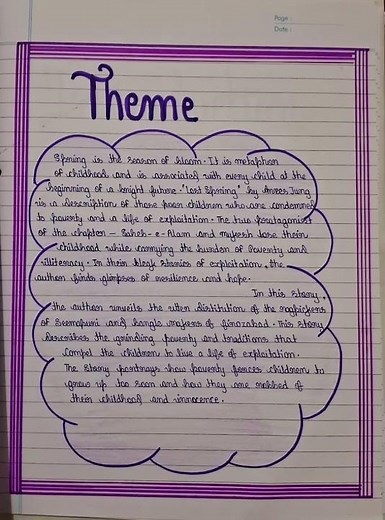 Page :
Date :
Theme
Spring is the season of bloom. It is metaphor
of childhood and is associated with every child at the
beginning of a bright future. "Lost Spring" by Anees Jung
is a description of those poor children who are condemned
to poverty and a life of exploitation. The two protagonist
of the chapter - Saheb-e-Alam and mukesh lose their
childhood while carrying the burden of Poverty and
illiteracy. In their bleak stories of exploitation, the
author finds glimpses of resilience and hope.
In this story,
the author unveils the utter distitution of the ragpickers
of seemapuri and bangle makers of firozabad. This story
describes the grinding poverty and traditions that
compel the children to live a life of exploitation.
The story portrays how poverty forces children to
grow up too soon and how they are robbed of
their childhood and innocence.